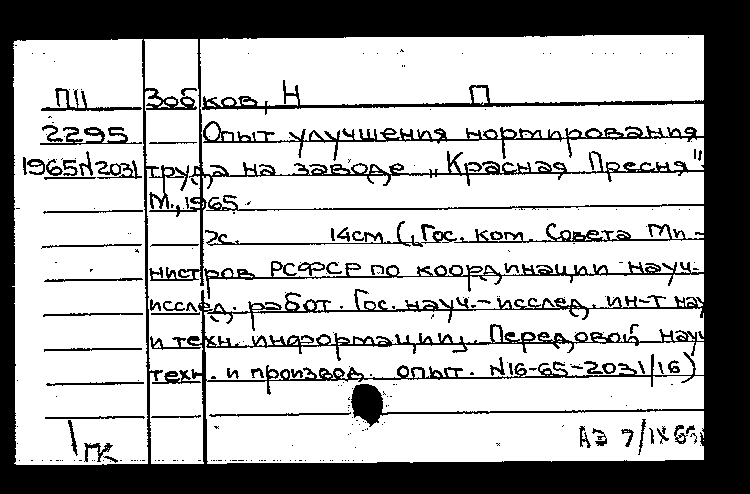 П11 Зобков, Н П
2295 Опыт улучшения нормирования
1965N2031 труда на заводе „Красная Пресня".
М., 1965.
с. 14см. (Гос. ком. Совета Ми-
нистров РСФСР по координации науч.-
исслед. работ. Гос. науч.-исслед. ин-т нау
и техн. информации. Передовой науч
техн. и производ. опыт. N16-65-2031/16)
гк АЭ 7/IX 65